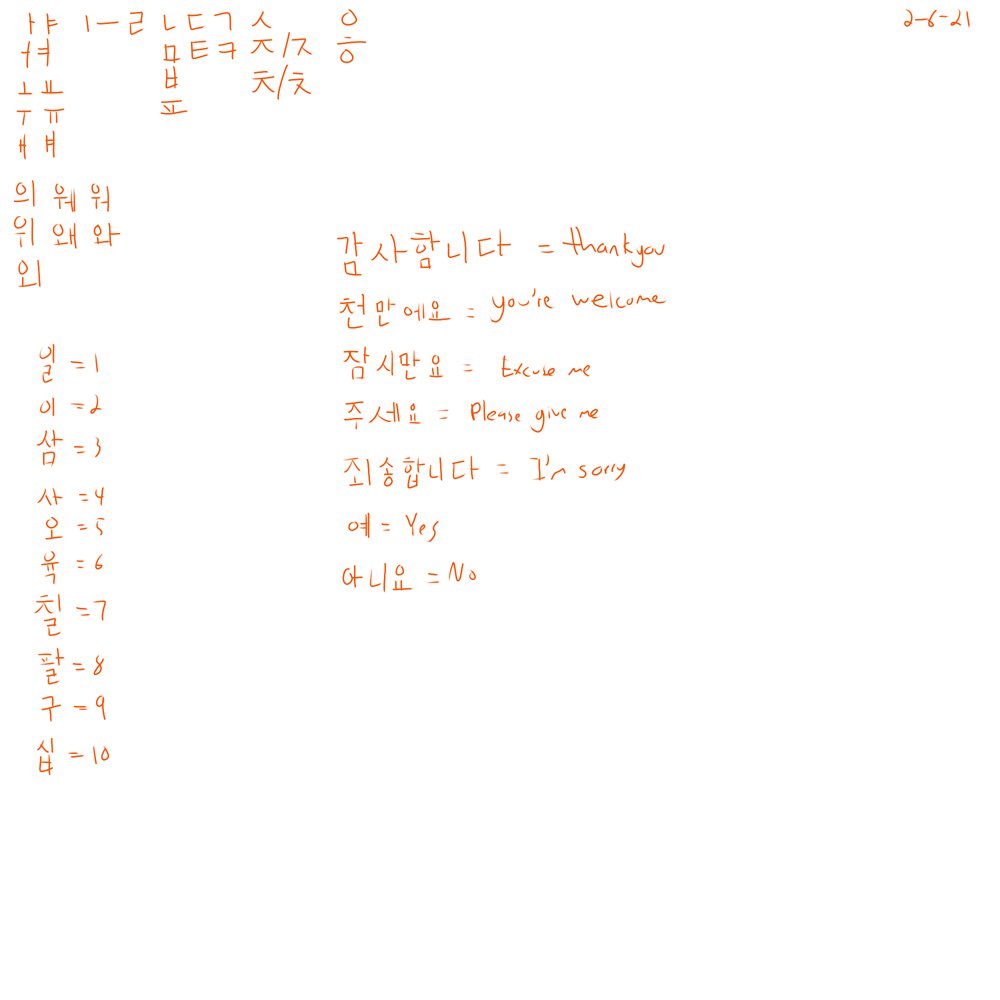 ㅏㅑ ㅣㅡㄹ ㄴㄷㄱ ㅅ ㅇ 2-6-21
ㅓㅕ ㅁㅌㅋ ㅈ/ㅈ ㅎ
ㅗㅛ ㅂ ㅊ/ㅊ
ㅜㅠ ㅍ
ㅐㅒ
의 웨 워
위 왜 와
외
감사함니다 = thankyou
천만에요 = you're welcome
잠시만요 = Excuse me
주세요 = Please give me
죄송합니다 = I'm sorry
예 = Yes
아니요 = No
일 = 1
이 = 2
삼 = 3
사 = 4
오 = 5
육 = 6
칠 = 7
팔 = 8
구 = 9
십 = 10